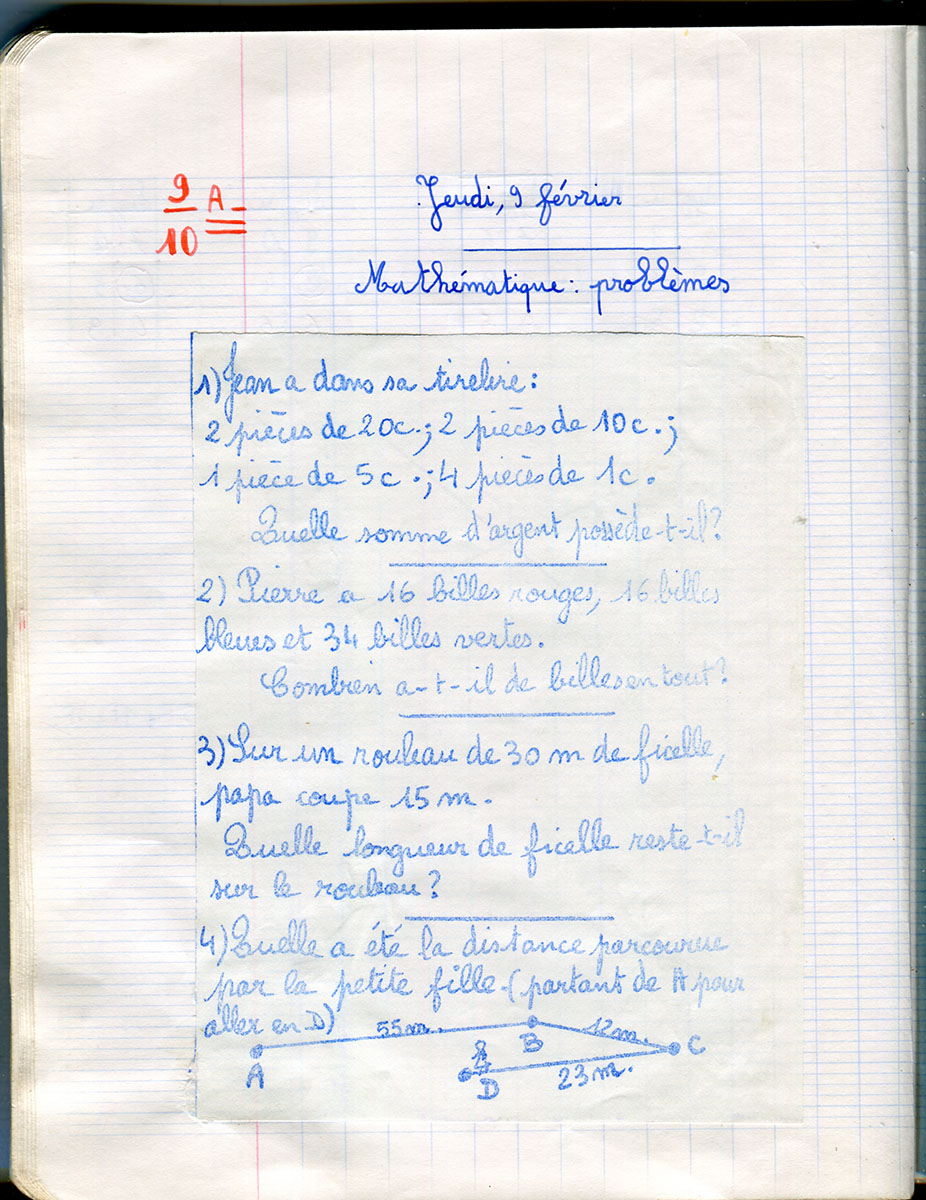 9
10
A-
Jeudi, 9 février
Mathématique: problèmes
1) Jean a dans sa tirelire:
2 pièces de 20c.; 2 pièces de 10c.;
1 pièce de 5c.; 4 pièces de 1c.
Quelle somme d'argent possède-t-il?
2) Pierre a 16 billes rouges, 16 billes
bleues et 34 billes vertes.
Combien a-t-il de billes en tout?
3) Sur un rouleau de 30 m de ficelle,
papa coupe 15 m.
Quelle longueur de ficelle reste-t-il
sur le rouleau?
4) Quelle a été la distance parcourue
par la petite fille (partant de A pour
aller en D)
55m.
12m.
A
B
C
D
23m.